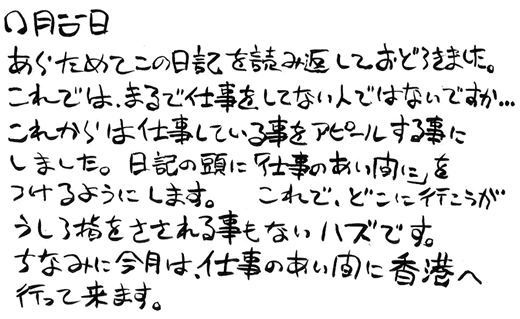 〇月△日
あらためてこの日記を読み返しておどろきました。
これでは、まるで仕事をしてない人ではないですか…
これからは仕事している事をアピールする事に
しました。日記の頭に「仕事のあい間に」を
つけるようにします。 これで、どこに行こうが
うしろ指をさされる事もないハズです。
ちなみに今月は、仕事のあい間に香港へ
行って来ます。